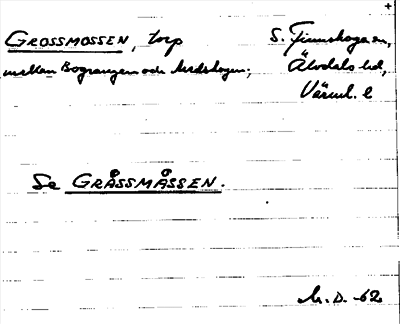 GROSSMOSSEN, torp
S. Finnskoga sn,
mellan Bograngen och Medskogen;
Älvdals hd,
Värml. l
Se GRÅSSMÅSSEN.
M. D. -62